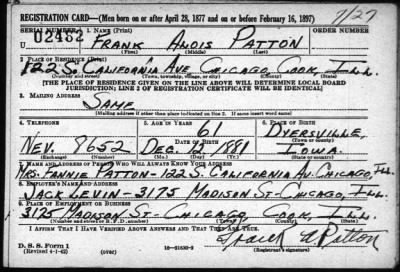 REGISTRATION CARD—(Men born on or after April 28, 1877 and on or before February 16, 1897)
7/27
SERIAL NUMBER 1. NAME (Print) ORDER NUMBER
U 02432 FRANK ALOIS PATTON
(First) (Middle) (Last)
2. PLACE OF RESIDENCE (Print)
122 S. CALIFORNIA AVE CHICAGO COOK ILL.
(Number and street) (Town, township, village, or city) (County) (State)
[THE PLACE OF RESIDENCE GIVEN ON THE LINE ABOVE WILL DETERMINE LOCAL BOARD
JURISDICTION; LINE 2 OF REGISTRATION CERTIFICATE WILL BE IDENTICAL]
3. MAILING ADDRESS
SAME
[Mailing address if other than place indicated on line 2. If same insert word same]
4. TELEPHONE 5. AGE IN YEARS 6. PLACE OF BIRTH
61 DYERSVILLE,
DATE OF BIRTH (Town or county)
NEV. 8652 DEC. 12 1881 IOWA.
(Exchange) (Number) (Mo.) (Day) (Yr.) (State or country)
7. NAME AND ADDRESS OF PERSON WHO WILL ALWAYS KNOW YOUR ADDRESS
MRS. FANNIE PATTON-122 S. CALIFORNIA AV. CHICAGO, ILL.
8. EMPLOYER'S NAME AND ADDRESS
JACK LEVIN-3175 MADISON ST-CHICAGO, ILL.
9. PLACE OF EMPLOYMENT OR BUSINESS
3175 MADISON ST- CHICAGO, COOK, ILL.
(Number and street or R. F. D. number) (Town) (County) (State)
I AFFIRM THAT I HAVE VERIFIED ABOVE ANSWERS AND THAT THEY ARE TRUE.
D. S. S. Form 1
(Revised 4-1-42) (over) 16—21630-2 Frank A Patton
(Registrant's signature)